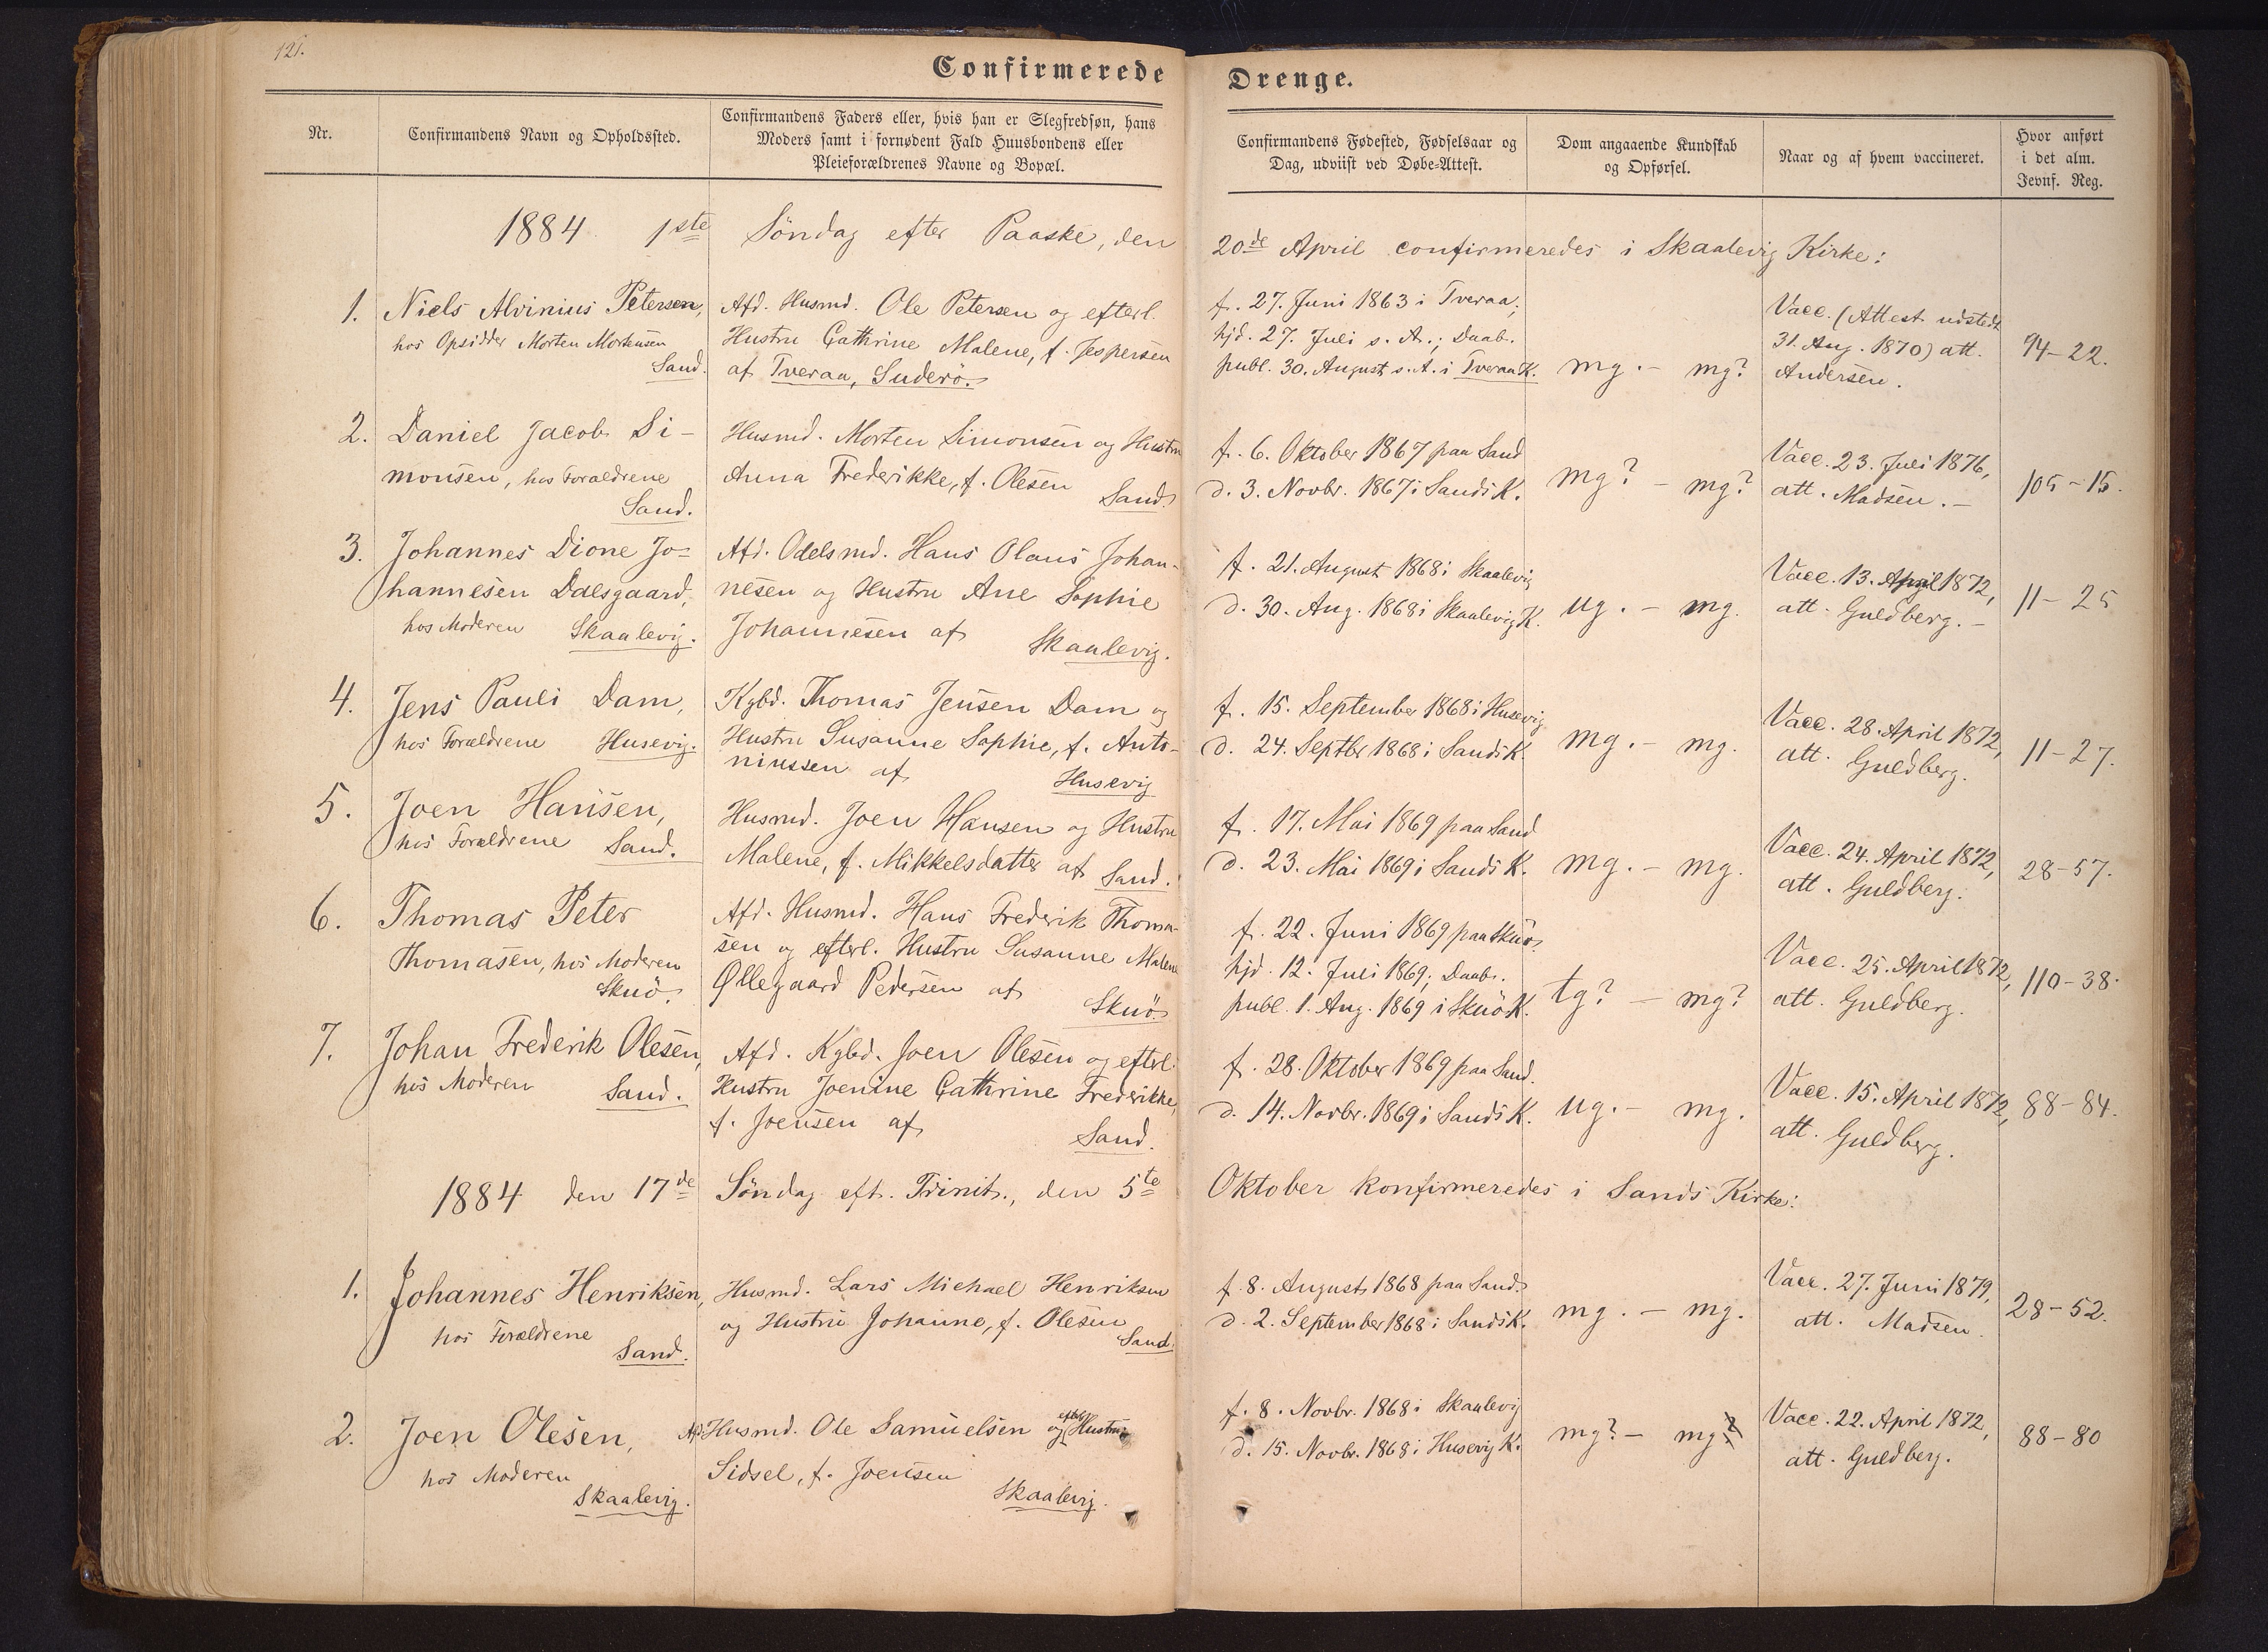 121.
Confirmerede Drenge.
Nr.
Confirmandens Navn og Opholdssted.
Confirmandens Faders eller, hvis han er Slegfredsøn, hans
Moders samt i fornødent Fald Huusbondens eller
Pleieforældrenes Navne og Bopæl.
Confirmandens Fødested, Fødselsaar og
Dag, udviist ved Døbe-Attest.
Dom angaaende Kundskab
og Opførsel.
Naar og af hvem vaccineret.
Hvor anført
i det alm.
Jevnf. Reg.
1884 1ste Söndag efter Paaske, den 20de April confirmeredes i Skaalevig Kirke:
1.
Niels Alvinius Petersen,
hos Opsidder Morten Mortensen
Sand.
Afd. Husmd. Ole Petersen og efterl.
Hustru Cathrine Malene, f. Jespersen
af Tveraa, Suderö.
f. 27. Juni 1863 i Tveraa;
hjd. 27. Juli s. A.; Daab.
publ. 30. August s. A. i Tveraa K.
mg. - mg?
Vacc. (Attest udstedt
31. Aug. 1870) att.
Andersen.
94-22.
2.
Daniel Jacob Si-
monsen, hos Forældrene
Sand.
Husmd. Morten Simonsen og Hustru
Anna Frederikke, f. Olesen
Sand.
f. 6. Oktober 1867 paa Sand
d. 3. Novbr. 1867 i Sands K.
mg? - mg?
Vacc. 23. Juli 1876,
att. Madsen. -
105-15.
3.
Johannes Dione Jo-
hannesen Dalsgaard,
hos Moderen Skaalevig.
Afd. Odelsmd. Hans Olaus Johan-
nesen og Hustru Ane Sophie
Johannesen af
Skaalevig.
f. 21. August 1868 i Skaalevig
d. 30. Aug. 1868 i Skaalevig K.
ug. - mg.
Vacc. 13. April 1872,
att. Guldberg. -
11-25
4.
Jens Pauli Dam,
hos Forældrene Husevig.
Kgbd. Thomas Jensen Dam og
Hustru Susanne Sophie, f. Anto-
niussen af
Husevig
f. 15. September 1868 i Husevig
d. 24. Septbr 1868 i Sands K.
mg. - mg.
Vacc. 28. April 1872,
att. Guldberg.
11-27.
5.
Joen Hansen,
hos Forældrene Sand.
Husmd. Joen Hansen og Hustru
Malene, f. Mikkelsdatter af Sand.
f. 17. Mai 1869 paa Sand
d. 23. Mai 1869 i Sands K.
mg. - mg.
Vacc. 24. April 1872,
att. Guldberg.
28-57.
6.
Thomas Peter
Thomasen, hos Moderen
Skuö.
Afd. Husmd. Hans Frederik Thoma-
sen og efterl. Hustru Susanne Malene
Øllegaard Pedersen af
Skuö.
f. 22. Juni 1869 paa Skuö.
hjd. 12. Juli 1869; Daab.
publ. 1. Aug. 1869 i Skuö K.
tg? - mg?
Vacc. 25. April 1872,
att. Guldberg.
110-38.
7.
Johan Frederik Olesen,
hos Moderen Sand.
Afd. Kgbd. Joen Olesen og efterl.
Hustru Joenine Cathrine Frederikke,
f. Joensen af
Sand.
f. 28. Oktober 1869 paa Sand.
d. 14. Novbr. 1869 i Sands K.
ug. - mg.
Vacc. 15. April 1872,
att. Guldberg.
88-84.
1884 den 17de Söndag eft. Trinit., den 5te Oktober konfirmeredes i Sands Kirke:
1.
Johannes Henriksen,
hos Forældrene
Sand.
Husmd. Lars Michael Henriksen
og Hustru Johanne, f. Olesen
Sand.
f. 8. August 1868 paa Sand.
d. 2. September 1868 i Sands K.
mg. - mg.
Vacc. 27. Juni 1879,
att. Madsen.
28-52.
2.
Joen Olesen,
hos Moderen
Skaalevig.
Afd. Husmd. Ole Samuelsen og efterl. Hustru
Sidsel, f. Joensen
Skaalevig.
f. 8. Novbr. 1868 i Skaalevig
d. 15. Novbr. 1868 i Husevig K.
mg? - mg?
Vacc. 22. April 1872,
att. Guldberg.
88-80